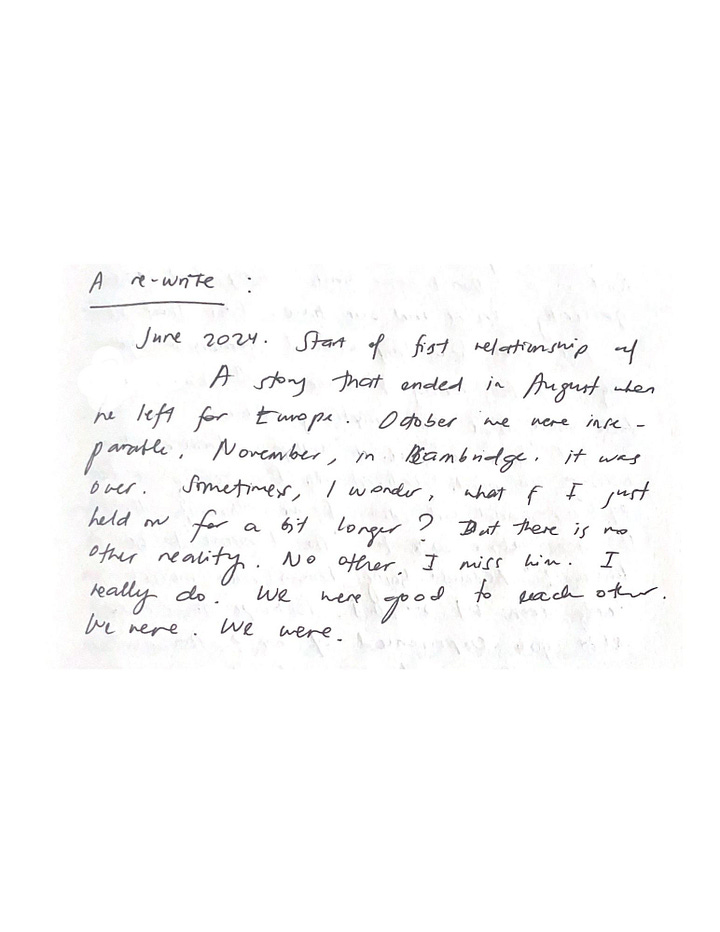 A re-write :
June 2024. Start of first relationship w/
A story that ended in August when
he left for Europe. October we were inse-
parable. November, in Cambridge. it was
over. Sometimes, I wonder, what if I just
held on for a bit longer? But there is no
other reality. No other. I miss him. I
really do. We were good to each other.
We were. We were.